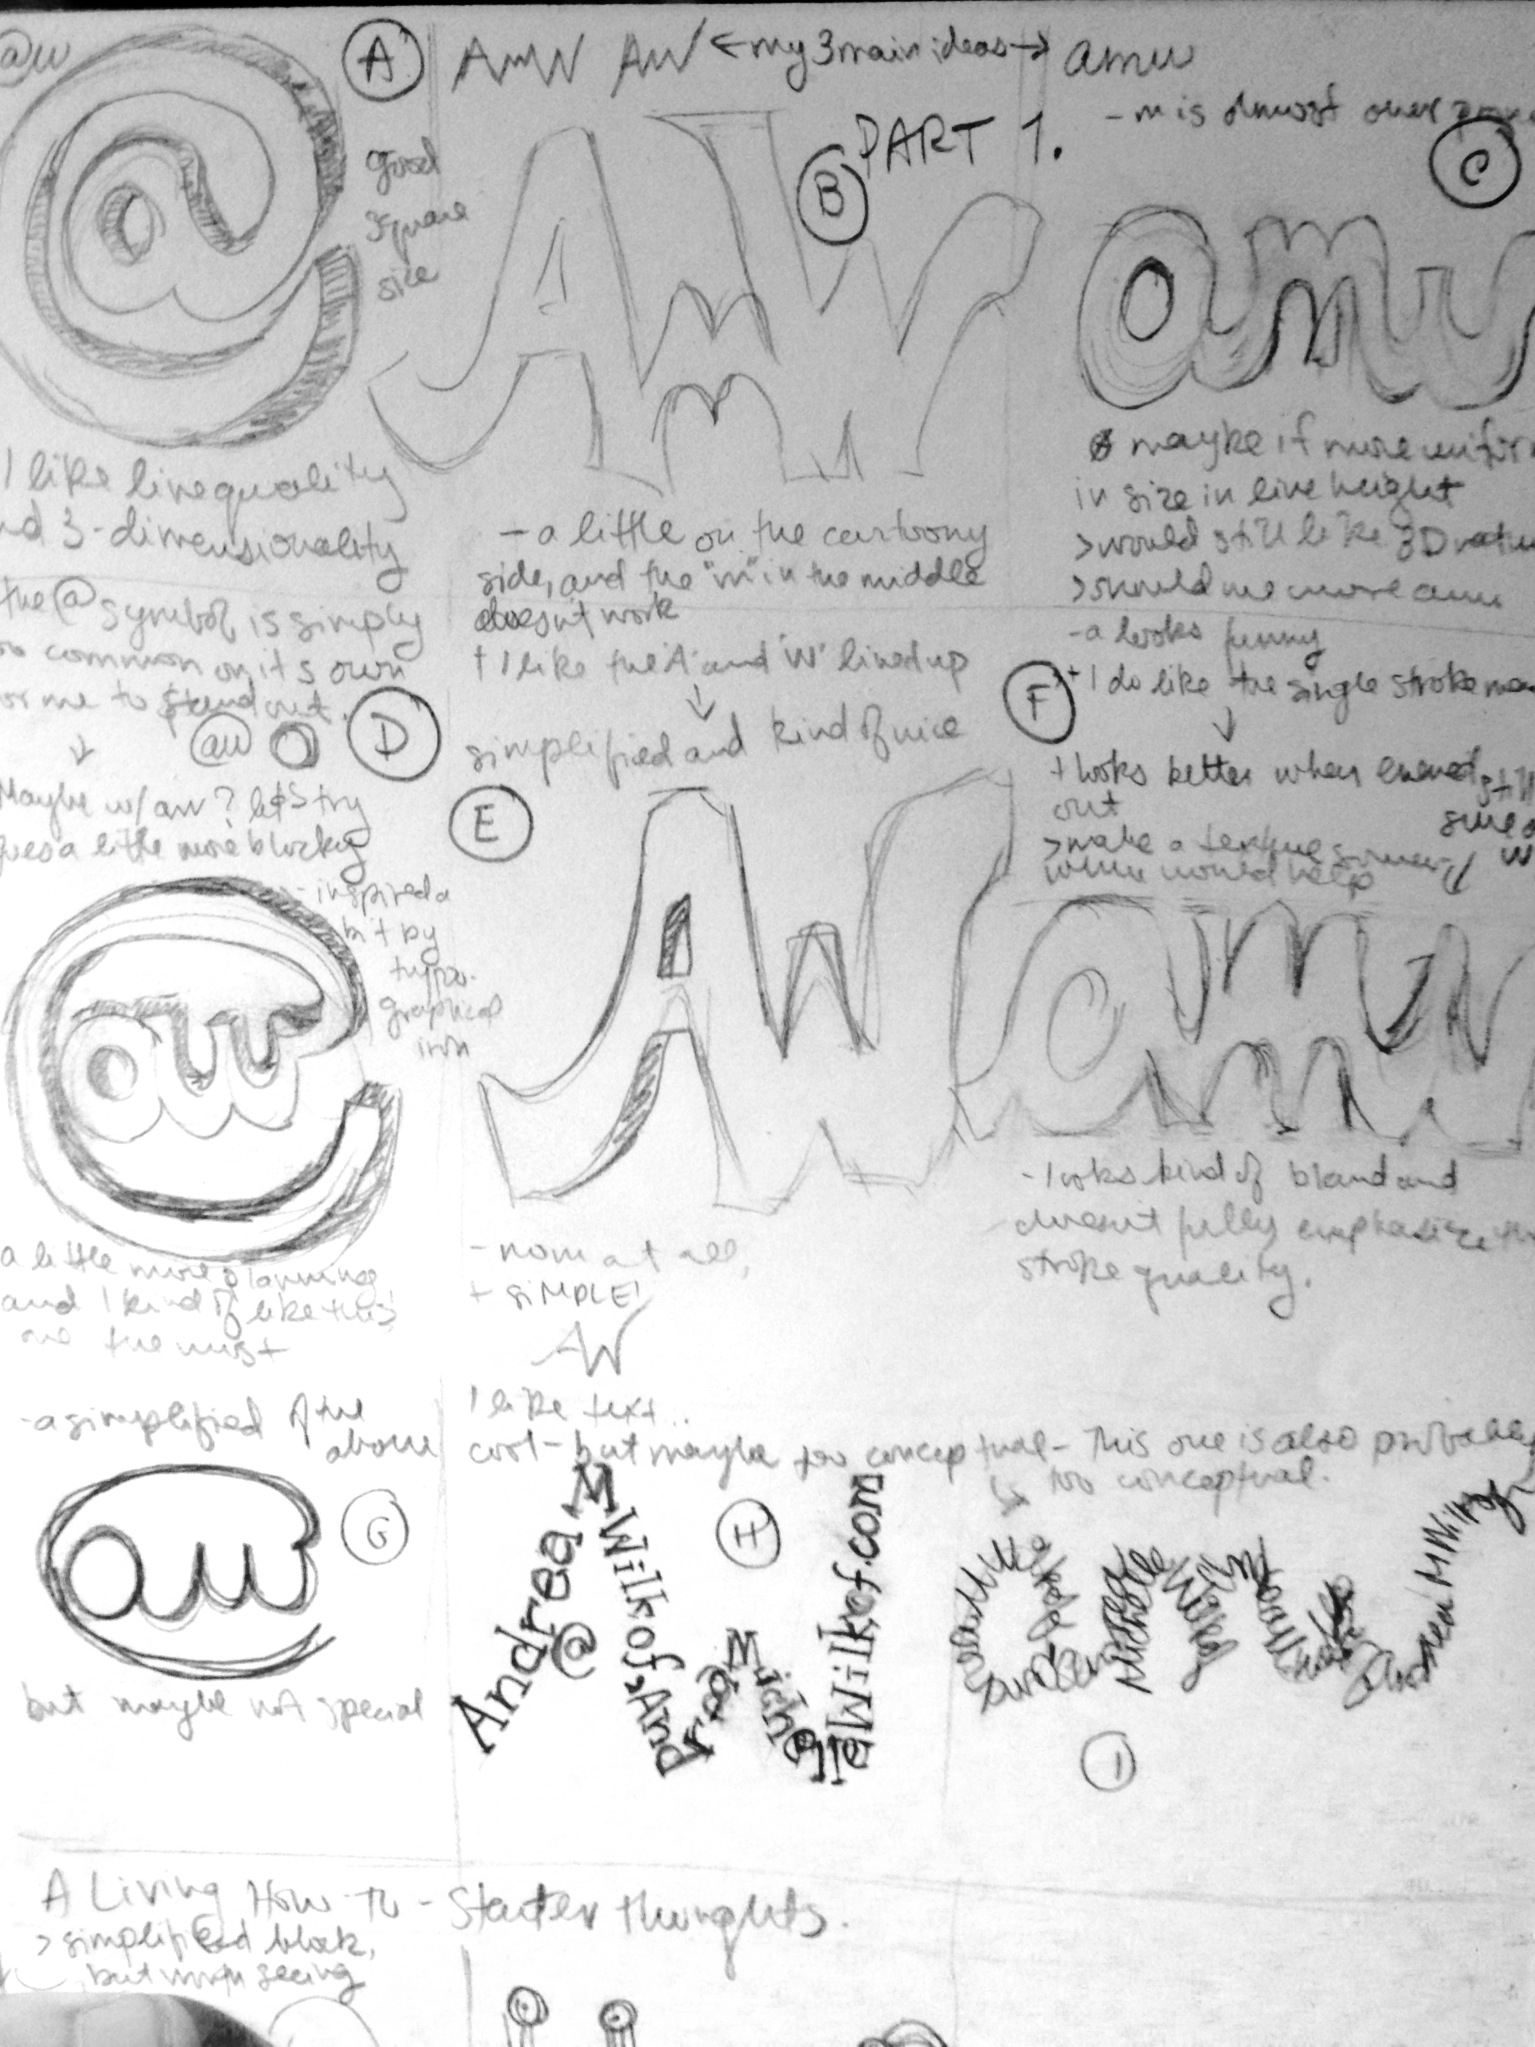 @w
A
AmW AW <-my 3 main ideas-> amw
PART 1.
good
square
size
B
- m is almost over
C
@
AmW
amw
I like line quality
nd 3-dimensionality
the @ symbol is simply
oo common on it's own
or me to stand out.
@w
D
Maybe w/ aw? let's try
a little more blocky
- inspired a
bit by
typo-
graphical
iron
aw
a little more planning
and I kind of like this
one the most
- a little on the cartoony
side, and the "m" in the middle
doesn't work
+ I like the 'A' and 'W' lined up
simplified and kind of nice
E
AW
- no m at all,
+ SIMPLE!
AW
maybe if more uniform
in size in line height
> would still like 3D
> should
- a looks funny
F
+ I do like the single stroke
+ looks better when evened
out
still
> make a
would help
amw
- looks kind of bland and
doesn't fully emphasize the
stroke quality.
- a simplified of the
above
aw
G
but maybe not special
I like text..
cool - but maybe too conceptual - This one is also probably
too conceptual.
H
Andrea M Wilkof,
@
Andrea Michelle Wilkof.com
Andrea M Wilkof
Michelle
I
A Living How-To - Starter thoughts.
> simplified block,
but seeing